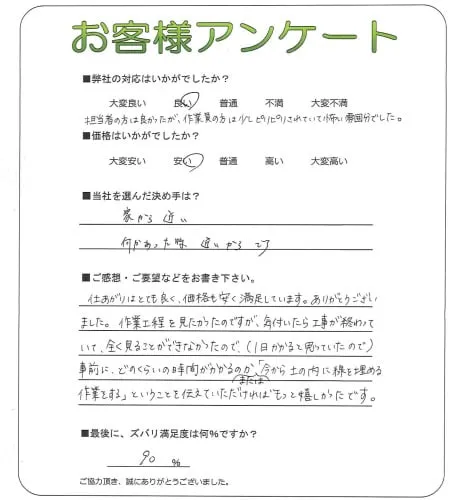 お客様アンケート
■弊社の対応はいかがでしたか？
大変良い 良い 普通 不満 大変不満
担当者の方は良かったが、作業員の方は少しピリピリされていて怖い雰囲気でした。
■価格はいかがでしたか？
大変安い 安い 普通 高い 大変高い
■当社を選んだ決め手は？
家から近い
何かあった時近いからです
■ご感想・ご要望などをお書き下さい。
仕あがりはとても良く、価格も安く満足しています。ありがとうござい
ました。作業工程を見たかったのですが、気付いたら工事が終わって
いて、全く見ることができなかったので、(1日かかると思っていたので)
事前に、どのくらいの時間がかかるのか、または「今から土の内に線を埋める
作業をする」ということを伝えていただければもっと嬉しかったです。
■最後に、ズバリ満足度は何％ですか？
90 ％
ご協力頂き、誠にありがとうございました。